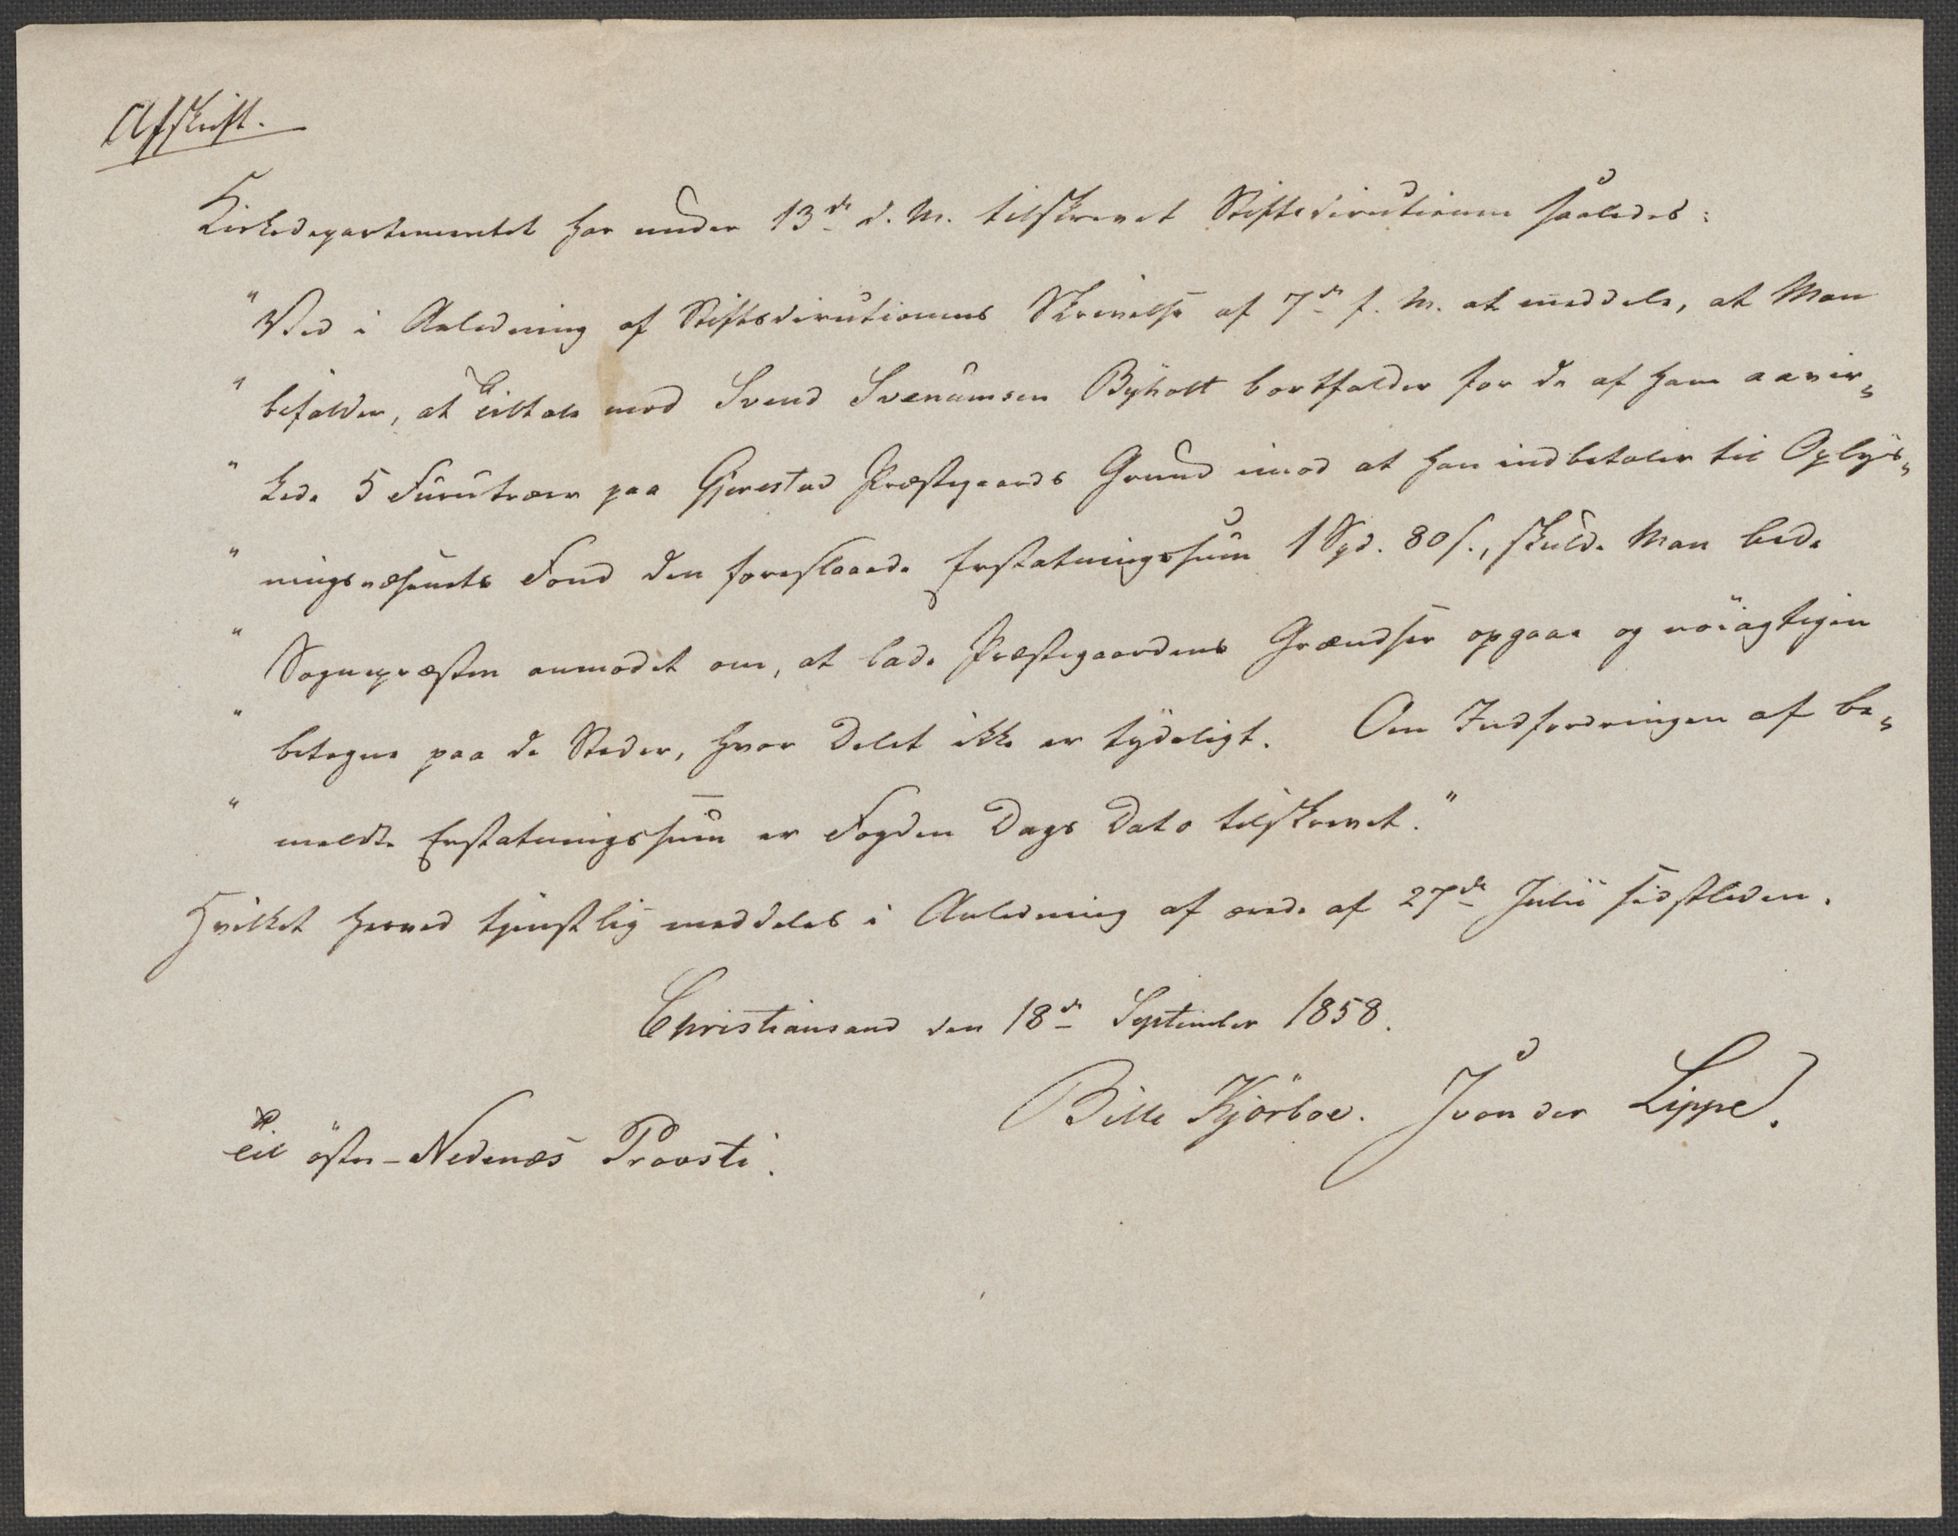 Afskrift.
Kirkedepartementet har under 13de d. M. tilskrevet Stiftsdirectionen saaledes:
"Ved i Anledning af Stiftsdirectionens Skrivelse af 7de f. M. at meddele, at Man
" bifalder, at Tiltale mod Svend Svenumsen Byholt bortfalder for de af ham aavir-
" kede 5 Furutræer paa Gjerestad Præstegaards Grund imod at han indbetaler til Oplys-
" ningsvæsenets Fond den foreslaaede Erstatningssum 1 Spd. 80 s., skulde Man bede
" Sognepræsten anmodet om, at lade Præstegaardens Grændser opgaae og nöiagtigen
" betegne paa de Steder, hvor Delet ikke er tydeligt. Om Indfordringen af be-
" meldte Erstatningssum er Fogden Dags Dato tilskrevet."
Hvilket herved tjenstlig meddeles i Anledning af af 27de Julii sidstleden.
Christiansand den 18de September 1858.
Bille Kjörboe. J von der Lippe.
Til öster-Nedenæs Provsti.